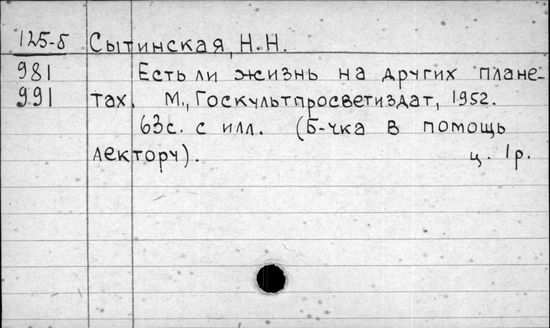 125-б Сытинская, Н.Н.
981 Есть ли жизнь на других плане-
991 тах. М., Госкультпросветиздат, 1952.
63с. с илл. (Б-чка в помощь
лектору). ц. 1р.